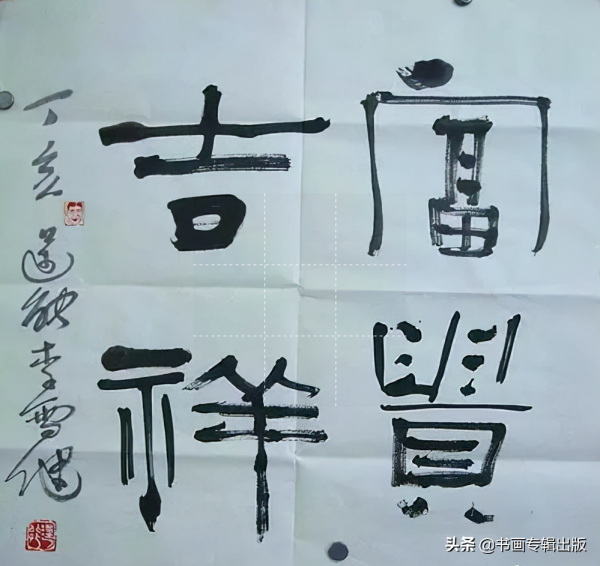 富貴
吉祥
丁亥
李雪健
头条 @书画专辑出版